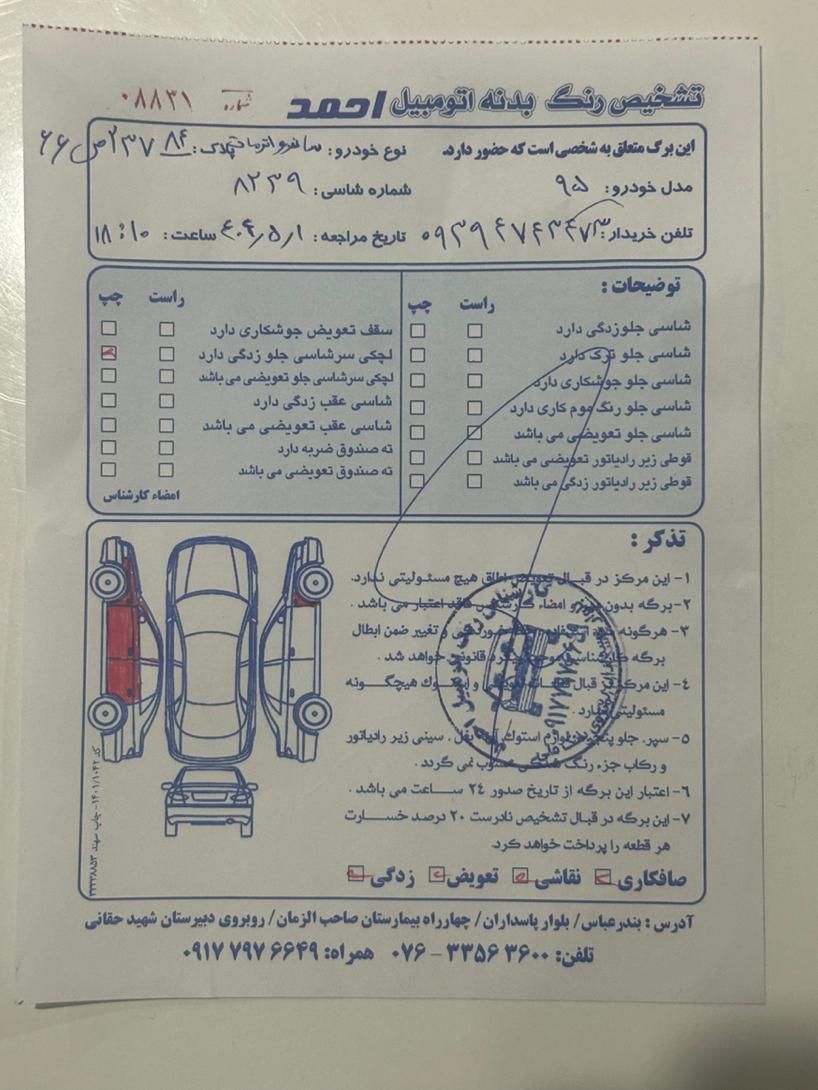 تشخیص رنگ بدنه اتومبیل احمد شماره ۰۸۸۳۱
این برگ متعلق به شخصی است که حضور دارد. نوع خودرو: ساندرو اتومات پلاک: ۸۴ ۲۳۷ص۶۶
مدل خودرو: ۹۵ شماره شاسی: ۸۲۳۹
تلفن خریدار: تاریخ مراجعه: ۴۰۴/۵/۱ ساعت: ۱۸:۱۰
توضیحات:
راست چپ
شاسی جلو زدگی دارد
شاسی جلو ترک دارد
شاسی جلو جوشکاری دارد
شاسی جلو رنگ موم کاری دارد
شاسی جلو تعویضی می باشد
قوطی زیر رادیاتور تعویضی می باشد
قوطی زیر رادیاتور زدگی می باشد
راست چپ
سقف تعویض جوشکاری دارد
لچکی سرشاسی جلو زدگی دارد
لچکی سرشاسی جلو تعویضی می باشد
شاسی عقب زدگی دارد
شاسی عقب تعویضی می باشد
ته صندوق ضربه دارد
ته صندوق تعویضی می باشد
امضاء کارشناس
تذکر:
۱- این مرکز در قبال تعویض اطاق هیچ مسئولیتی ندارد.
۲- برگه بدون مهر و امضاء کارشناس فاقد اعتبار می باشد.
۳- هرگونه و تغییر ضمن ابطال
برگه قانونی خواهد شد.
۴- این مرکز در قبال هیچگونه
مسئولیتی ندارد.
۵- سپر، جلو پنجره، لوازم استوک، سینی زیر رادیاتور
و رکاب جزء رنگ محسوب نمی گردد.
۶- اعتبار این برگه از تاریخ صدور ۲۴ ساعت می باشد.
۷- این برگه در قبال تشخیص نادرست ۲۰ درصد خسارت
هر قطعه را پرداخت خواهد کرد.
صافکاری نقاشی تعویض زدگی
آدرس: بندرعباس/ بلوار پاسداران/ چهارراه بیمارستان صاحب الزمان/ روبروی دبیرستان شهید حقانی
تلفن: ۳۶۰۰ ۳۳۵۶ - ۰۷۶ همراه: ۶۶۴۹ ۷۹۷ ۰۹۱۷